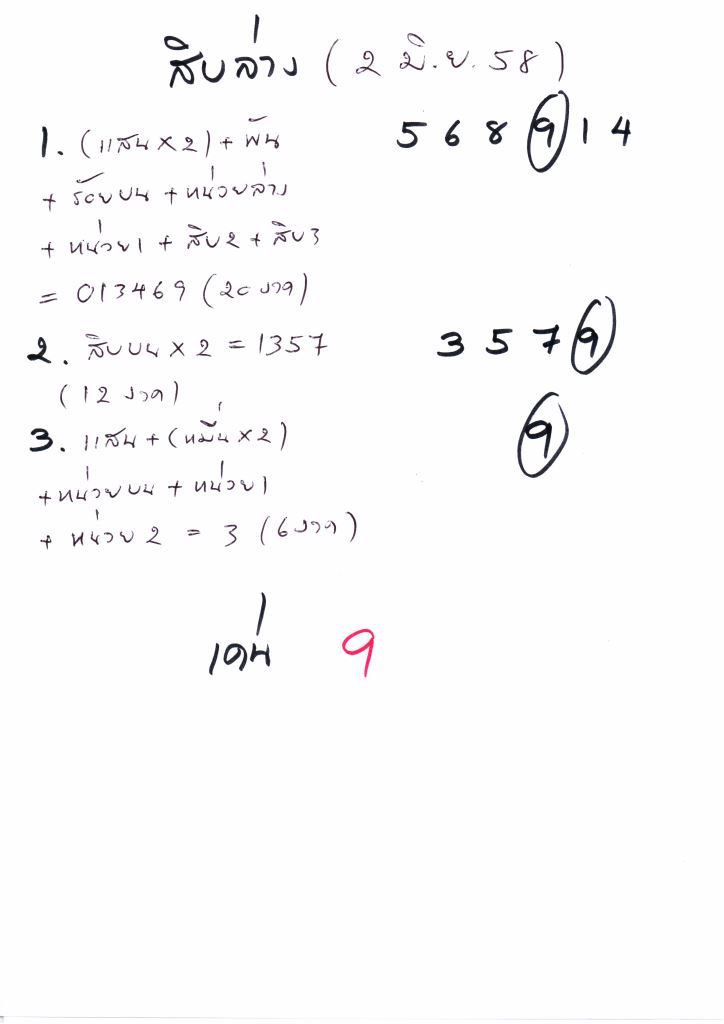 สิบล่าง (2 มิ.ย. 58)
1. (แสน x 2) + พัน 5 6 8 9 1 4
+ ร้อยบน + หน่วยล่าง
+ หน่วย1 + สิบ2 + สิบ3
= 013469 (20 งวด)
2. สิบบน x 2 = 1357 3 5 7 9
(12 งวด)
9
3. แสน + (หมื่น x 2)
+ หน่วยบน + หน่วย1
+ หน่วย 2 = 3 (6 งวด)
เด่น 9